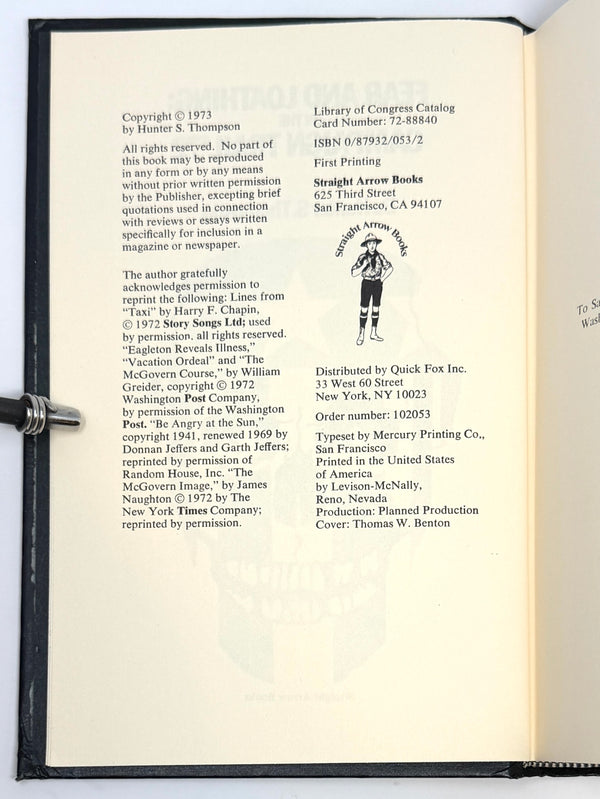 Copyright © 1973
by Hunter S. Thompson
All rights reserved. No part of
this book may be reproduced
in any form or by any means
without prior written permission
by the Publisher, excepting brief
quotations used in connection
with reviews or essays written
specifically for inclusion in a
magazine or newspaper.
The author gratefully
acknowledges permission to
reprint the following: Lines from
“Taxi” by Harry F. Chapin,
© 1972 Story Songs Ltd; used
by permission. all rights reserved.
“Eagleton Reveals Illness,”
“Vacation Ordeal” and “The
McGovern Course,” by William
Greider, copyright © 1972
Washington Post Company,
by permission of the Washington
Post. “Be Angry at the Sun,”
copyright 1941, renewed 1969 by
Donnan Jeffers and Garth Jeffers;
reprinted by permission of
Random House, Inc. “The
McGovern Image,” by James
Naughton © 1972 by The
New York Times Company;
reprinted by permission.
Library of Congress Catalog
Card Number: 72-88840
ISBN 0/87932/053/2
First Printing
Straight Arrow Books
625 Third Street
San Francisco, CA 94107
Straight Arrow Books
Distributed by Quick Fox Inc.
33 West 60 Street
New York, NY 10023
Order number: 102053
Typeset by Mercury Printing Co.,
San Francisco
Printed in the United States
of America
by Levison-McNally,
Reno, Nevada
Production: Planned Production
Cover: Thomas W. Benton
To